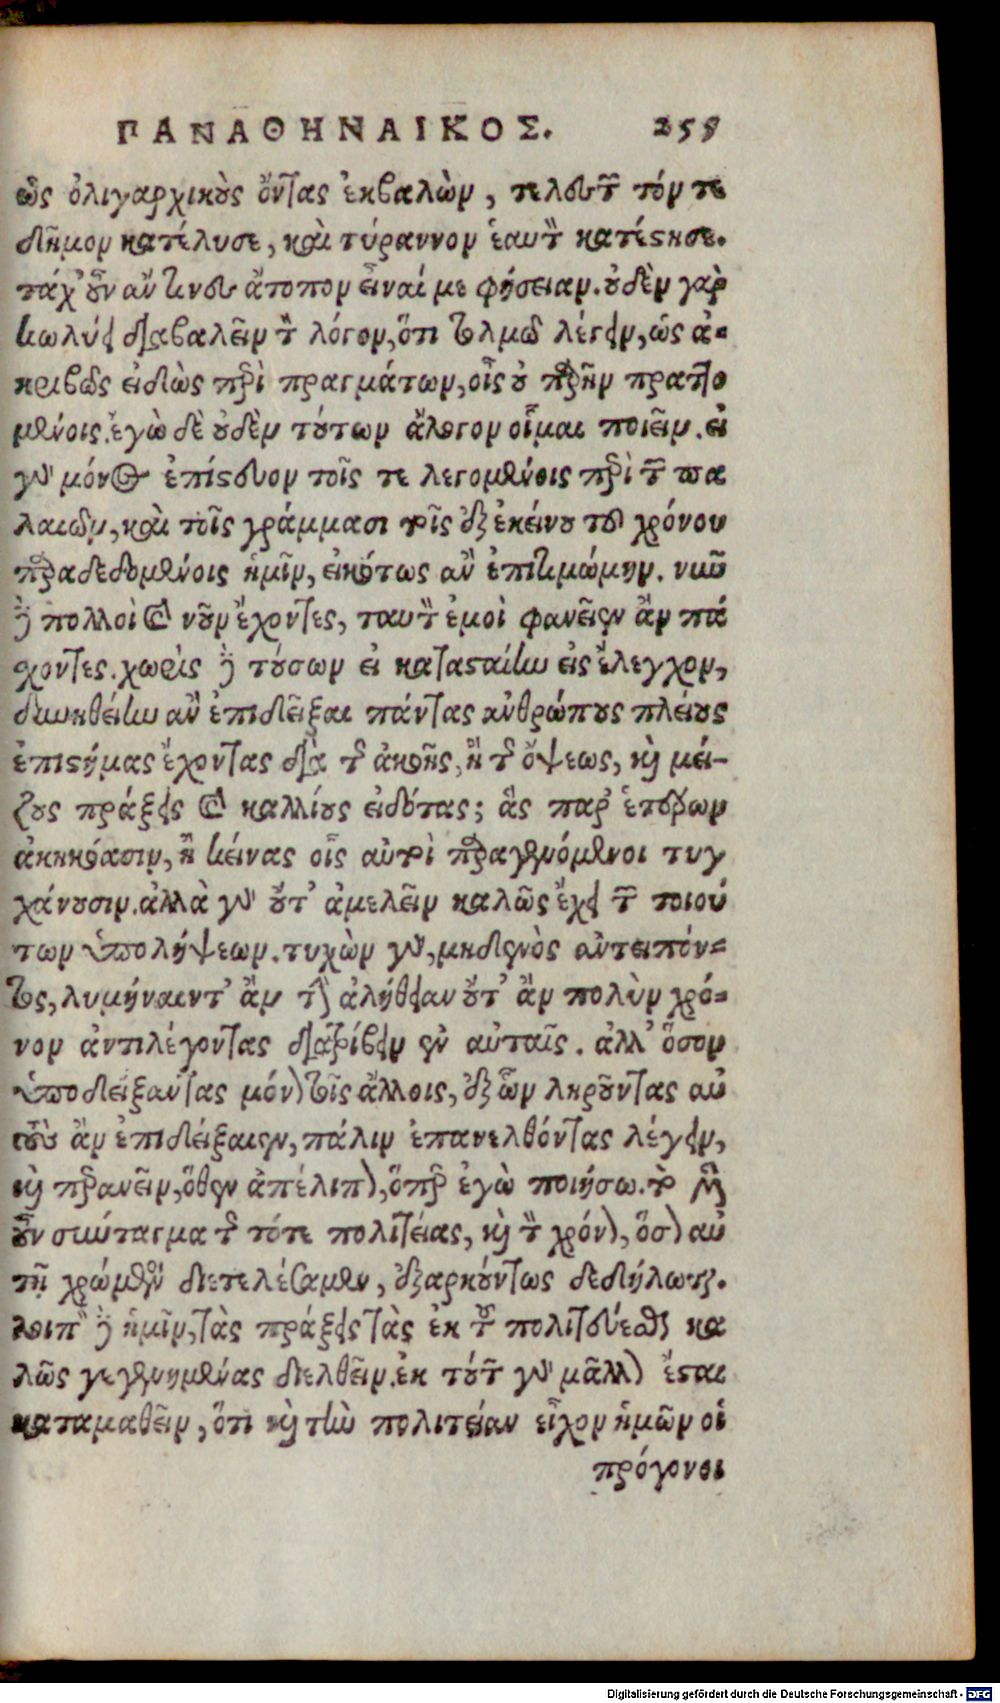 ΠΑΝΑΘΗΝΑΙΚΟΣ. 259
ὡς ὀλιγαρχικοὺς ὄντας ἐκβαλὼν, τελευτῶν τόν τε
δῆμον κατέλυσε, καὶ τύραννον ἑαυτὸν κατέστησε.
τάχ᾽ οὖν ἄν τινες ἄτοπον εἶναί με φήσειαν. οὐδὲν γὰρ
κωλύει διαβαλεῖν τὸν λόγον, ὅτι τολμῶ λέγειν, ὡς ἀ-
κριβῶς εἰδὼς περὶ πραγμάτων, οἷς οὐ παρῆν πραττο
μένοις. ἐγὼ δὲ οὐδὲν τούτων ἄλογον οἶμαι ποιεῖν. εἰ
γὰρ μόνος ἐπίστευον τοῖς τε λεγομένοις περὶ τῶν πα
λαιῶν, καὶ τοῖς γράμμασι τοῖς ἐξ ἐκείνου τοῦ χρόνου
παραδεδομένοις ἡμῖν, εἰκότως ἂν ἐπιτιμώμην. νῦν
δὲ πολλοὶ καὶ νοῦν ἔχοντες, ταυτὸν ἐμοὶ φανεῖεν ἂν πά
χοντες. χωρὶς δὲ τούτων εἰ κατασταίην εἰς ἔλεγχον,
δυνηθείην ἂν ἐπιδεῖξαι πάντας ἀνθρώπους πλείους
ἐπιστήμας ἔχοντας διὰ τῆς ἀκοῆς, ἢ τῆς ὄψεως, καὶ μεί-
ζους πράξεις καὶ καλλίους εἰδότας; ἃς παρ᾽ ἑτέρων
ἀκηκόασιν, ἢ κείνας οἷς αὐτοὶ παραγενόμενοι τυγ
χάνουσιν. ἀλλὰ γὰρ οὔτ᾽ ἀμελεῖν καλῶς ἔχει τῶν τοιού
των ὑπολήψεων. τυχὼν γὰρ, μηδενὸς ἀντειπόν-
τος, λυμήναιντ᾽ ἂν τὴν ἀλήθειαν οὔτ᾽ ἂν πολὺν χρό-
νον ἀντιλέγοντας διατρίβειν ἐν αὐταῖς. ἀλλ᾽ ὅσον
ὑποδείξαντας μόνον τοῖς ἄλλοις, ἐξ ὧν ληροῦντας αὐ
τοὺς ἂν ἐπιδείξαιεν, πάλιν ἐπανελθόντας λέγειν,
καὶ περανεῖν, ὅθεν ἀπέλιπον, ὅπερ ἐγὼ ποιήσω. τὸ μὲν
οὖν σύνταγμα τῆς τότε πολιτείας, καὶ τὸν χρόνον, ὅσον αὐ
τῇ χρώμενοι διετελέσαμεν, ἐξαρκούντως δεδήλωται.
λοιπὸν δὲ ἡμῖν, τὰς πράξεις τὰς ἐκ τοῦ πολιτεύεσθαι κα
λῶς γεγενημένας διελθεῖν. ἐκ τούτων γὰρ μᾶλλον ἔσται
καταμαθεῖν, ὅτι καὶ τὴν πολιτείαν εἶχον ἡμῶν οἱ
πρόγονοι
Digitalisierung gefördert durch die Deutsche Forschungsgemeinschaft - DFG